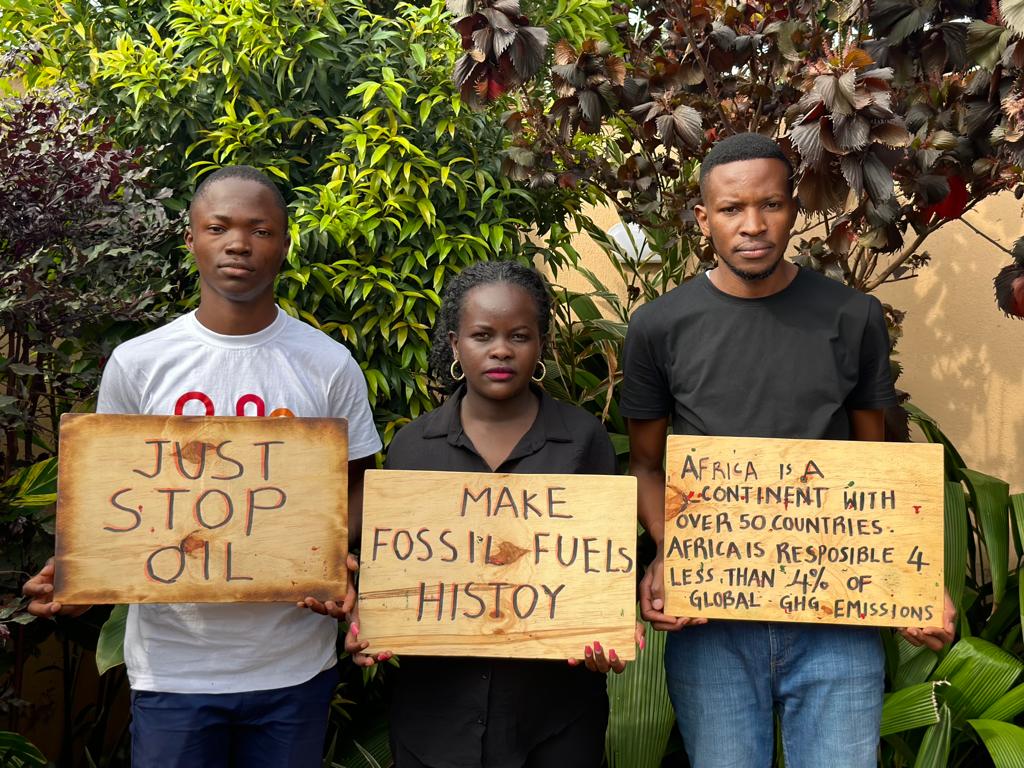 JUST
STOP
OIL
MAKE
FOSSIL FUELS
HISTOY
AFRICA IS A
CONTINENT WITH
OVER 50 COUNTRIES.
AFRICA IS RESPOSIBLE 4
LESS THAN 4% OF
GLOBAL GHG EMISSIONS